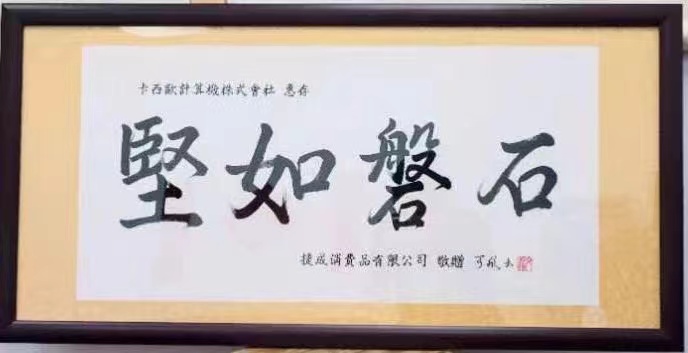 卡西歐計算機株式會社 惠存
堅如磐石
捷成消費品有限公司 敬贈